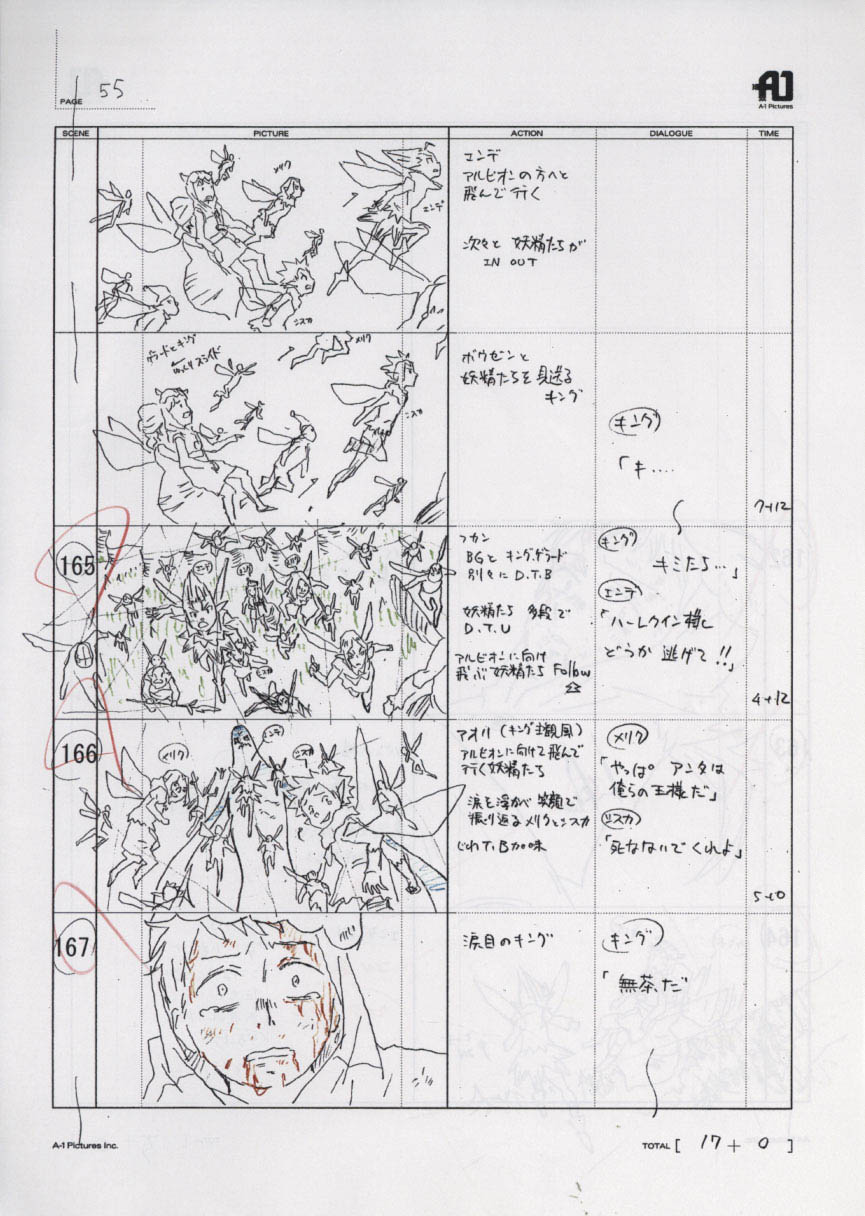 PAGE 55
A-1 Pictures
SCENE PICTURE ACTION DIALOGUE TIME
メリク
エンデ
ニスカ
エンデ
アルビオンの方へと
飛んで行く
次々と 妖精たちが
IN OUT
メリク
ゲラードとキング
ゆっくりスライド
ニスカ
ボウゼンと
妖精たちを見送る
キング
キング
「キ‥‥
7+12
165
フカン
BGと キング、ゲラード
別々に D.T.B
妖精たち 多段で
D.T.U
アルビオンに向け
飛ぶ妖精たち Follow
キング
キミたち…」
エンデ
「ハーレクイン様
どうか 逃げて!!」
4+12
166
メリク
エンデ
ニスカ
アオリ(キング主観風)
アルビオンに向けて飛んで
行く妖精たち
涙を浮かべ 笑顔で
振り返るメリクとニスカ
じわT.B加味
メリク
「やっぱ アンタは
俺らの王様だ」
ニスカ
「死なないでくれよ」
5+0
167
涙目のキング
キング
「無茶だ
A-1 Pictures Inc.
TOTAL [ 17 + 0 ]